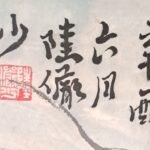 辛酉
六月
陸儼
少